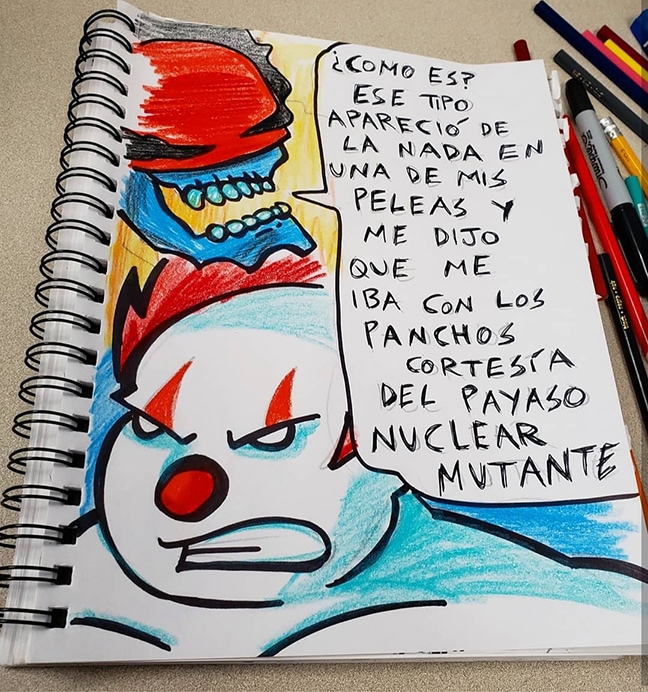 ¿COMO ES?
ESE TIPO
APARECIÓ DE
LA NADA EN
UNA DE MIS
PELEAS Y
ME DIJO
QUE ME
IBA CON LOS
PANCHOS
CORTESÍA
DEL PAYASO
NUCLEAR
MUTANTE